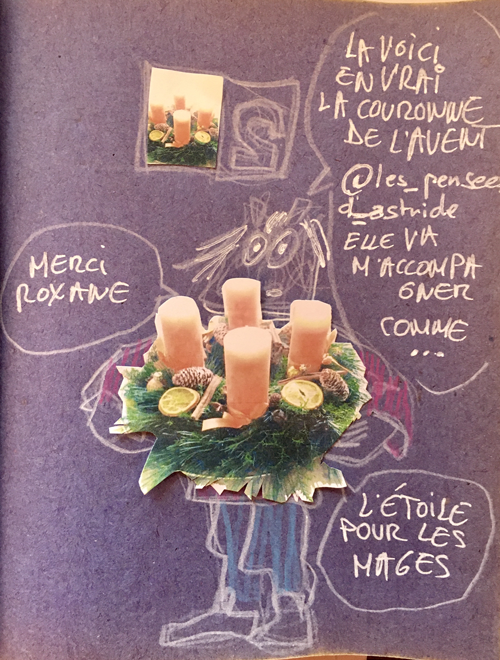 2
LA VOICI
EN VRAI
LA COURONNE
DE L'AVENT
@les_pensee
d_astride
ELLE VA
M'ACCOMPA
GNER
COMME
...
MERCI
ROXANE
L'ÉTOILE
POUR LES
MAGES